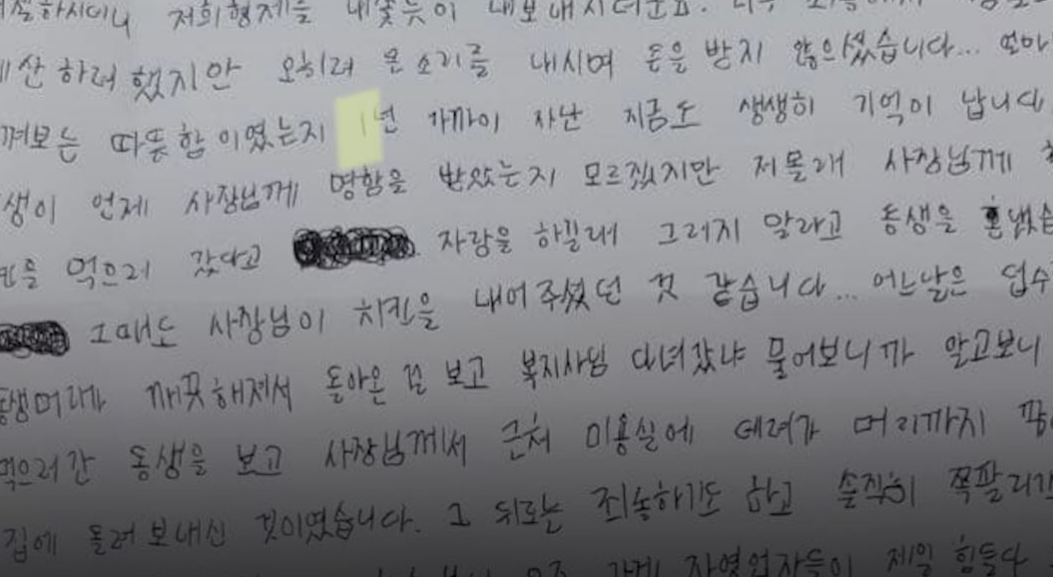 저희형제를 내쫓듯이 내보내시더군요.
하려 했지만 오히려 큰소리를 내시며 돈을 받지 않으셨습니다...
껴보는 따뜻함이였는지 1년 가까이 지난 지금도 생생히 기억이 납니다
생이 언제 사장님께 명함을 받았는지 모르겠지만 저몰래 사장님께
을 먹으러 갔다고 자랑을 하길래 그러지 말라고 동생을 혼냈습
그때도 사장님이 치킨을 내어주셨던 것 같습니다... 어느날은 덥수
동생머리가 깨끗해져서 돌아온 걸 보고 복지사님 다녀갔냐 물어보니까 알고보니
먹으러간 동생을 보고 사장님께서 근처 미용실에 데려가 머리까지
집에 돌려보내신 것이였습니다. 그 뒤로는 죄송하기도 하고 솔직히 쪽팔리기
요즘 가게 자영업자들이 제일 힘들다